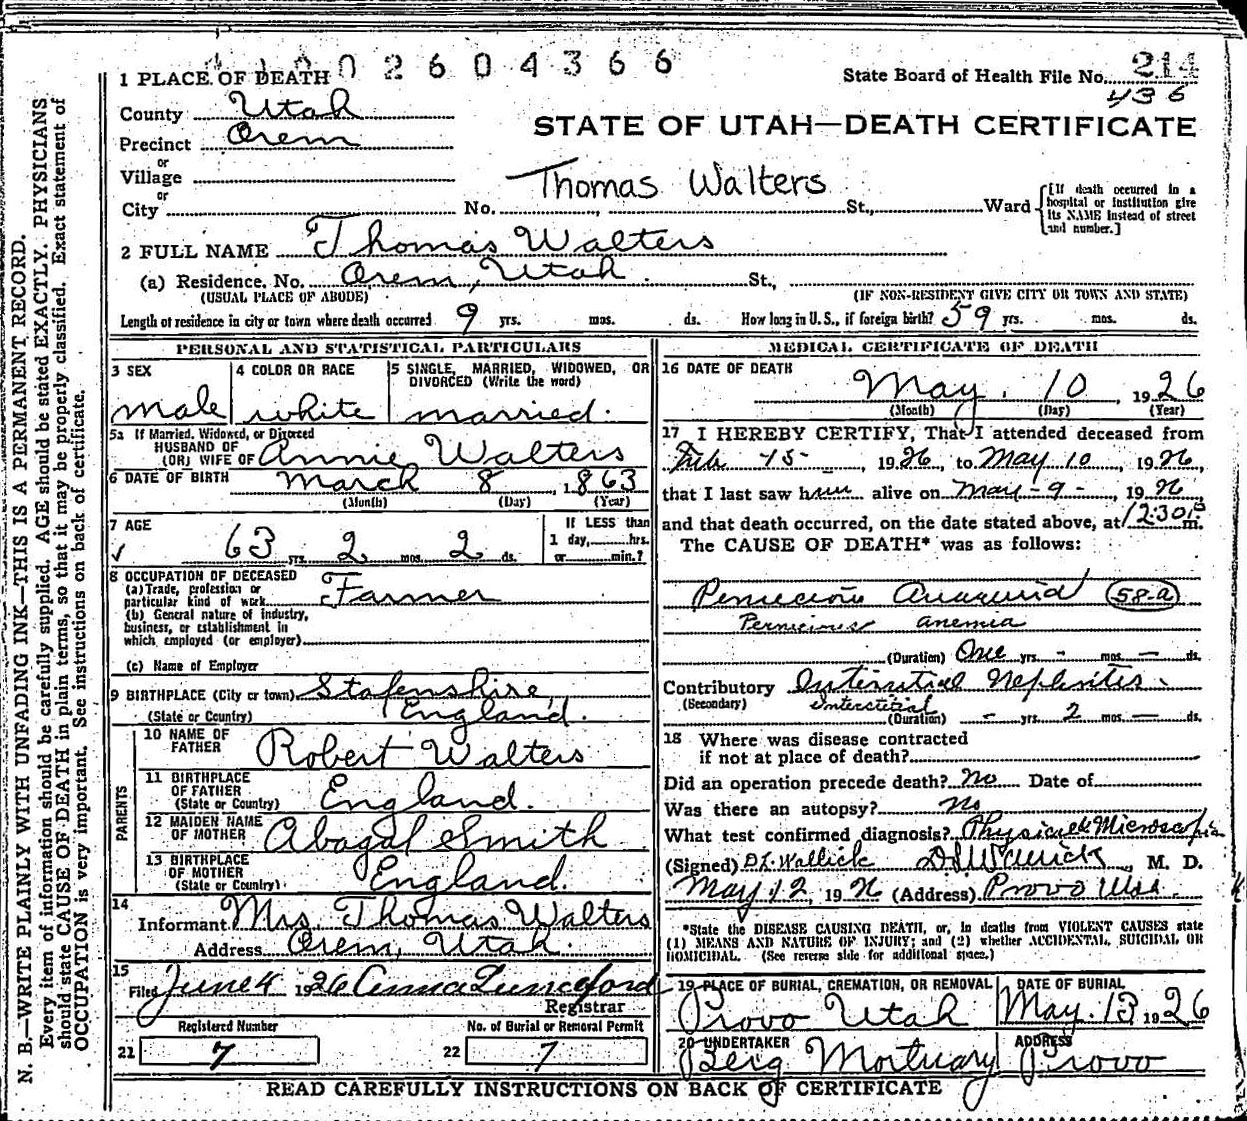 002604366
1 PLACE OF DEATH
State Board of Health File No. 214
436
County Utah
STATE OF UTAH—DEATH CERTIFICATE
Precinct Orem
or
Village
Thomas Walters
or
City No. St., Ward
[If death occurred in a hospital or institution give its NAME instead of street and number.]
2 FULL NAME Thomas Walters
(a) Residence, No. Orem, Utah St.,
(USUAL PLACE OF ABODE) (IF NON-RESIDENT GIVE CITY OR TOWN AND STATE)
Length of residence in city or town where death occurred 9 yrs. mos. ds. How long in U.S., if foreign birth? 59 yrs. mos. ds.
PERSONAL AND STATISTICAL PARTICULARS
3 SEX
male
4 COLOR OR RACE
white
5 SINGLE, MARRIED, WIDOWED, OR
DIVORCED (Write the word)
married.
5a If Married, Widowed, or Divorced
HUSBAND OF
(OR) WIFE OF Annie Walters
6 DATE OF BIRTH March 8, 1863
(Month) (Day) (Year)
7 AGE
63 yrs. 2 mos. 2 ds.
If LESS than
1 day, hrs.
or min.?
8 OCCUPATION OF DECEASED
(a) Trade, profession or
particular kind of work Farmer
(b) General nature of industry,
business, or establishment in
which employed (or employer)
(c) Name of Employer
9 BIRTHPLACE (City or town) Stafenshire,
(State or Country) England.
PARENTS
10 NAME OF
FATHER Robert Walters
11 BIRTHPLACE
OF FATHER
(State or Country) England.
12 MAIDEN NAME
OF MOTHER Abagal Smith
13 BIRTHPLACE
OF MOTHER
(State or Country) England.
14
Informant Mrs Thomas Walters
Address Orem, Utah.
15
Filed June 4 1926 Anna Lunceford
Registrar
Registered Number No. of Burial or Removal Permit
21 7 22 7
MEDICAL CERTIFICATE OF DEATH
16 DATE OF DEATH
May. 10, 1926
(Month) (Day) (Year)
17 I HEREBY CERTIFY, That I attended deceased from
Feb 15 - , 1926, to May 10, 1926,
that I last saw him alive on May - 9 -, 1926,
and that death occurred, on the date stated above, at 12:30 P m.
The CAUSE OF DEATH* was as follows:
58-a
Pernicious anemia
(Duration) One yrs - mos. — ds.
Contributory Interstitial Nephritis.
(Secondary) Interstitial
(Duration) - yrs. 2 mos. — ds.
18 Where was disease contracted
if not at place of death?
Did an operation precede death? No Date of
Was there an autopsy? No
What test confirmed diagnosis? Physical & Microscopic
(Signed) D.L. Wallick, M. D.
May 12, 1926 (Address) Provo Utah
*State the DISEASE CAUSING DEATH, or, in deaths from VIOLENT CAUSES state
(1) MEANS AND NATURE OF INJURY; and (2) whether ACCIDENTAL, SUICIDAL OR
HOMICIDAL. (See reverse side for additional space.)
19 PLACE OF BURIAL, CREMATION, OR REMOVAL
Provo Utah
DATE OF BURIAL
May. 13 1926
20 UNDERTAKER
Berg Mortuary
ADDRESS
Provo
READ CAREFULLY INSTRUCTIONS ON BACK OF CERTIFICATE
N. B.—WRITE PLAINLY WITH UNFADING INK—THIS IS A PERMANENT RECORD.
Every item of information should be carefully supplied. AGE should be stated EXACTLY. PHYSICIANS
should state CAUSE OF DEATH in plain terms, so that it may be properly classified. Exact statement of
OCCUPATION is very important. See instructions on back of certificate.